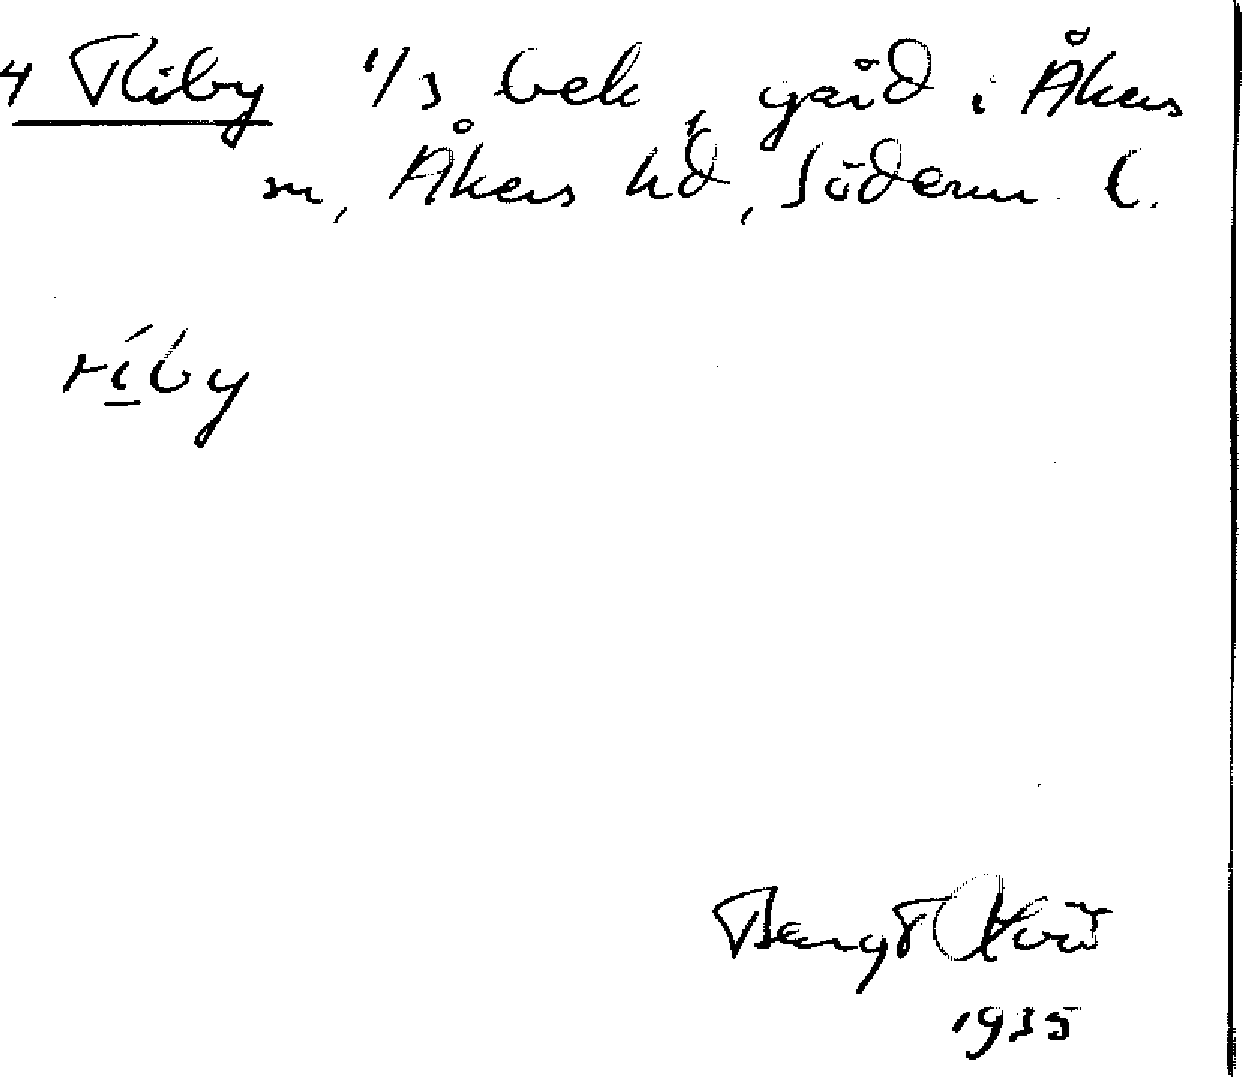 4 Riby 1/3 bek, gård i Åkers
sn, Åkers hd, Söderm. l.
ríby
Bengt
1935